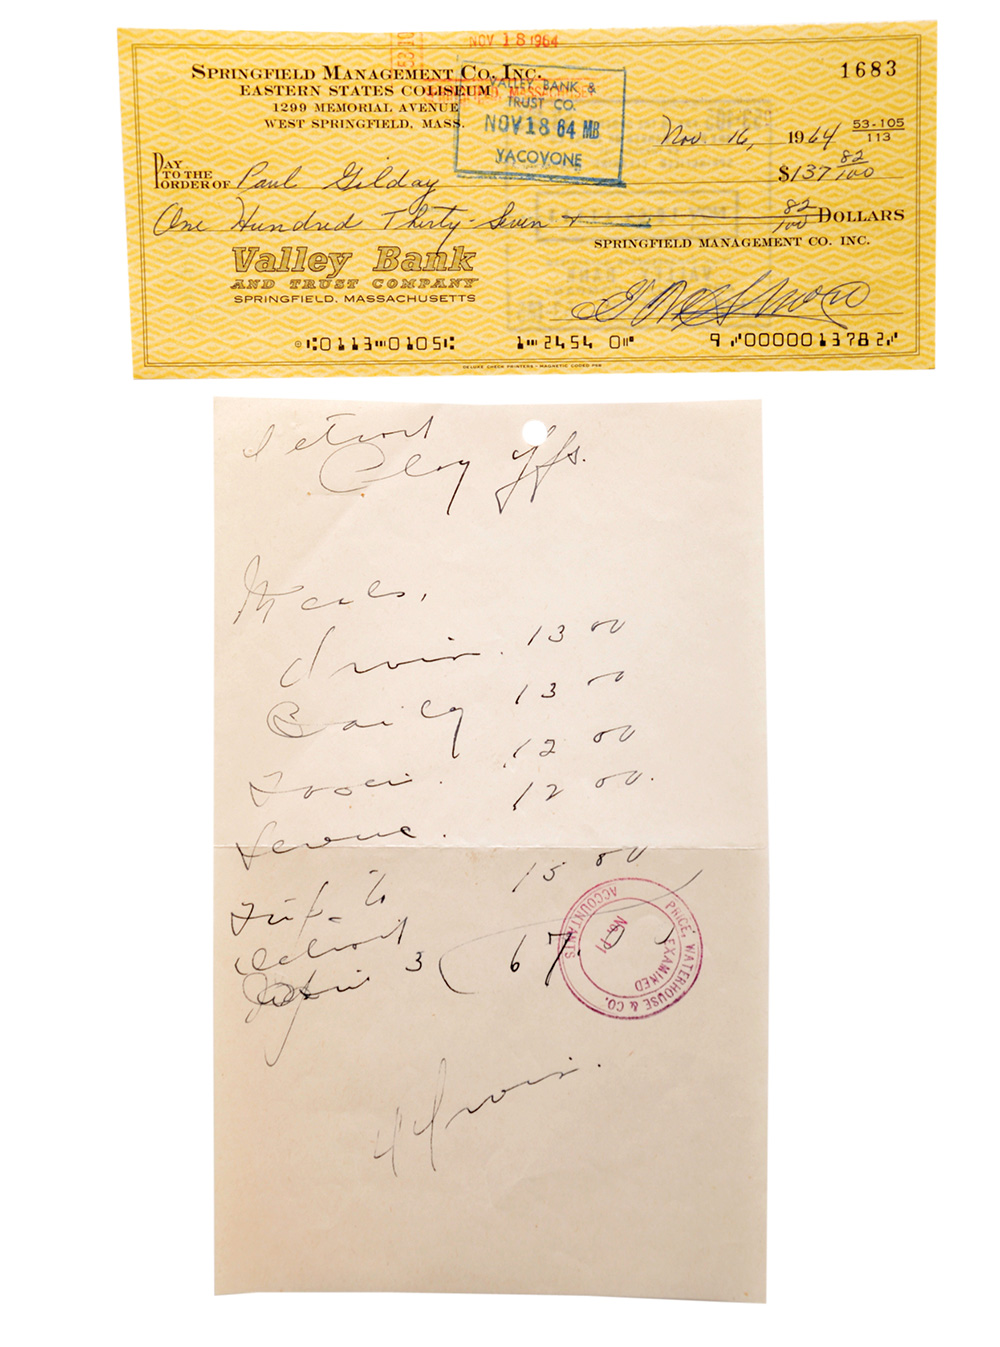 NOV 18 1964
SPRINGFIELD MANAGEMENT CO. INC.
EASTERN STATES COLISEUM
1299 MEMORIAL AVENUE
WEST SPRINGFIELD, MASS.
VALLEY BANK &
TRUST CO.
NOV 18 64 MB
YACOVONE
1683
Nov. 16, 1964
53-105
113
PAY TO THE ORDER OF Paul Gilday $137 82/100
One Hundred Thirty-Seven & 82/100 DOLLARS
Valley Bank
AND TRUST COMPANY
SPRINGFIELD, MASSACHUSETTS
SPRINGFIELD MANAGEMENT CO. INC.
0113 0105 1 2454 0 9 0000013782
DELUXE CHECK PRINTERS - MAGNETIC CODED PAR
Detroit
Play Offs.
Meals,
Irvin. 13 00
Baily 13 00
12 00
12 00.
Trip to 15 00
Detroit
3 67.
PRICE, WATERHOUSE & CO.
ACCOUNTANTS
EXAMINED
No. P1
Irvin.